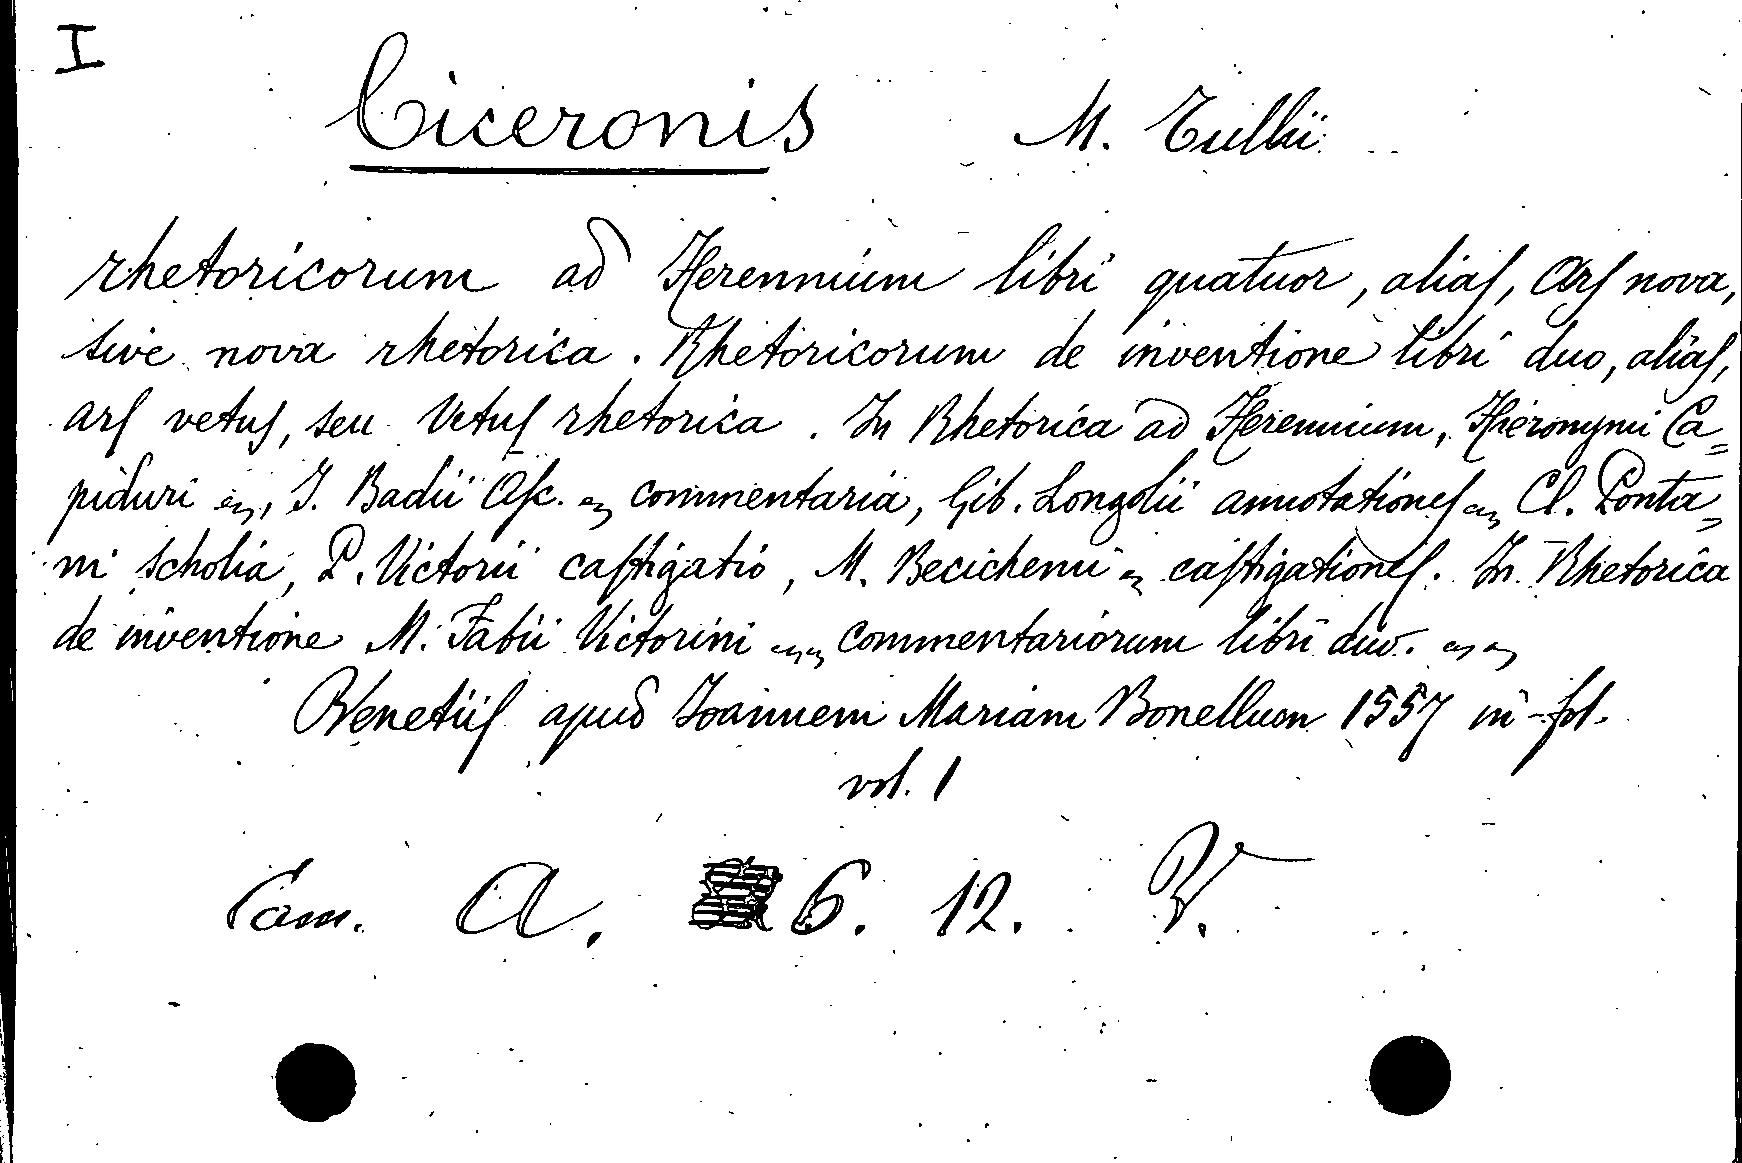 I
Ciceronis M. Tullii
rhetoricorum ad Herennium libri quatuor, aliaſ, Arſ nova,
sive nova rhetorica. Rhetoricorum de inventione libri duo, aliaſ,
arſ vetuſ, seu Vetuſ rhetorica. In Rhetorica ad Herennium, Hieronymi Ca=
piduri ..., J. Badii Aſc. ... commentaria, Gib. Longolii annotationeſ ... Cl. Ponta=
ni scholia, P. Victorii caſtigatio, M. Becichemi ... caſtigationeſ. In Rhetorica
de inventione M. Fabii Victorini ... commentariorum libri duo. ...
Venetiiſ apud Ioannem Mariam Bonellum 1557 in-fol.
vol. 1
Cam. A. 6. 12. V.